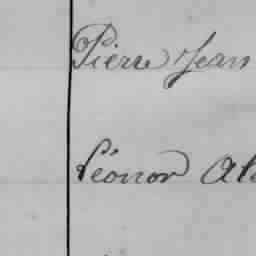 Pierre Jean
Léonor Al